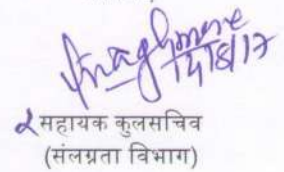 14/8/17
सहायक कुलसचिव
(संलग्नता विभाग)